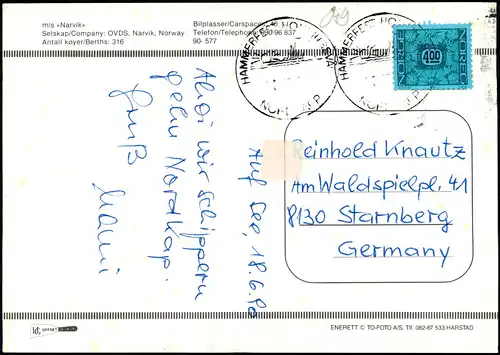 m/s «Narvik»
Selskap/Company: ÖVDS, Narvik, Norway
Antall køyer/Berths: 316
Bilplasser/Carspaces: 40
Telefon/Telephone: 090-96 837
90- 577
HAMMERFEST HONNINGSVÅG
HAMMERFEST HO
NORGE
400
NOREG
Ahoi wir schippern
gehn Nordkap.
Gruß
Auf See, 18.6.
Reinhold Knautz
Am Waldspielpl. 41
8130 Starnberg
Germany
OFFSET
ENERETT © TO-FOTO A/S. Tlf. 082-67 533 HARSTAD